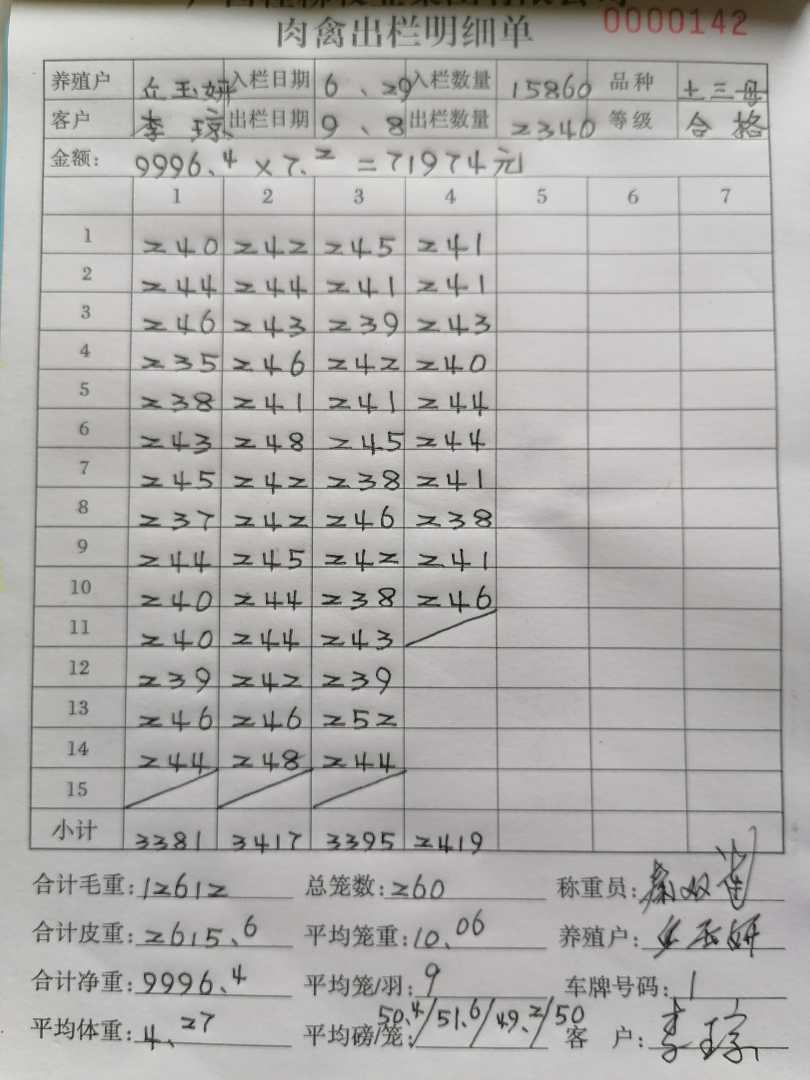 肉禽出栏明细单 0000142
养殖户 丘玉妍 入栏日期 6、29 入栏数量 15860 品种 土三母
客户 李琼 出栏日期 9、8 出栏数量 2340 等级 合格
金额: 9996.4 × 7.2 = 71974元
1 2 3 4 5 6 7
1 240 242 245 241
2 244 244 241 241
3 246 243 239 243
4 235 246 242 240
5 238 241 241 244
6 243 248 245 244
7 245 242 238 241
8 237 242 246 238
9 244 245 242 241
10 240 244 238 246
11 240 244 243
12 239 242 239
13 246 246 252
14 244 248 244
15
小计 3381 3417 3395 2419
合计毛重: 12612 总笼数: 260 称重员:
合计皮重: 2615.6 平均笼重: 10.06 养殖户: 丘玉妍
合计净重: 9996.4 平均笼/羽: 9 车牌号码: 1
平均体重: 4.27 平均磅/笼: 50.4/51.6/49.2/50 客 户: 李琼